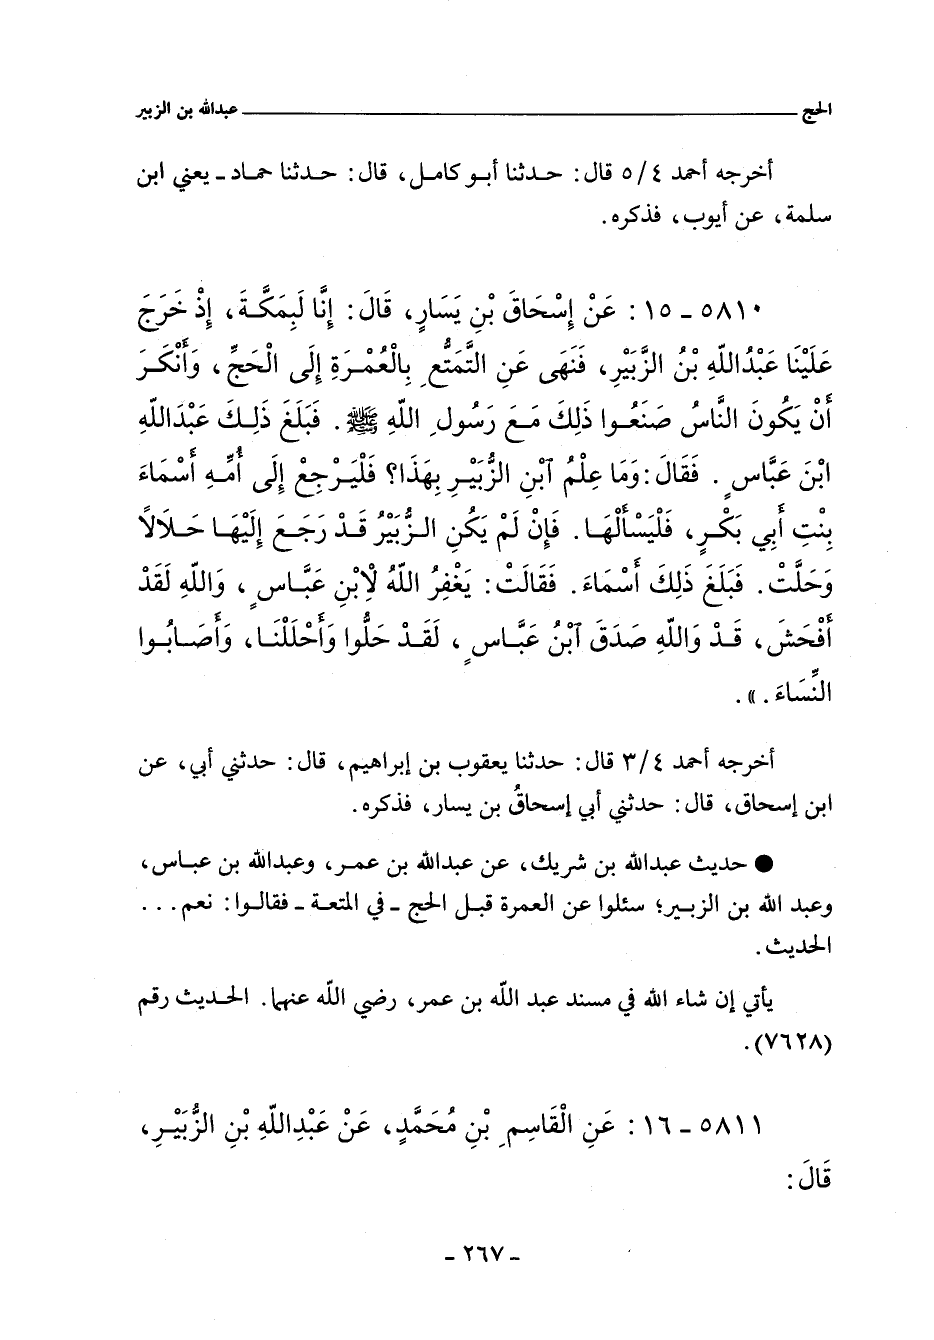 الحج عبدالله بن الزبير
أخرجه أحمد ٤/ ٥ قال: حدثنا أبو كامل، قال: حدثنا حماد ـ يعني ابن
سلمة، عن أيوب، فذكره.
٥٨١٠ ـ ١٥ : عَنْ إِسْحَاقَ بْنِ يَسَارٍ، قَالَ: إِنَّا لَبِمَكَّةَ، إِذْ خَرَجَ
عَلَيْنَا عَبْدُاللّهِ بْنُ الزَّبَيْرِ، فَنَهَى عَنِ التَّمَتُّعِ بِالْعُمْرَةِ إِلَى الْحَجِّ، وَأَنْكَرَ
أَنْ يَكُونَ النَّاسُ صَنَعُوا ذَلِكَ مَعَ رَسُولِ اللّهِ ﷺ. فَبَلَغَ ذَلِكَ عَبْدَاللّهِ
ابْنَ عَبَّاسٍ. فَقَالَ: وَمَا عِلْمُ ٱبْنِ الزُّبَيْرِ بِهَذَا؟ فَلْيَرْجِعْ إِلَى أُمِّهِ أَسْمَاءَ
بِنْتِ أَبِي بَكْرٍ، فَلْيَسْأَلْهَا. فَإِنْ لَمْ يَكُنِ الزُّبَيْرُ قَدْ رَجَعَ إِلَيْهَا حَلَالاً
وَحَلَّتْ. فَبَلَغَ ذَلِكَ أَسْمَاءَ. فَقَالَتْ: يَغْفِرُ اللّهُ لِابْنِ عَبَّاسٍ، وَاللّهِ لَقَدْ
أَفْحَشَ، قَدْ وَاللّهِ صَدَقَ ٱبْنُ عَبَّاسٍ، لَقَدْ حَلُّوا وَأَحْلَلْنَا، وَأَصَابُوا
النِّسَاءَ.».
أخرجه أحمد ٤/ ٣ قال: حدثنا يعقوب بن إبراهيم، قال: حدثني أبي، عن
ابن إسحاق، قال: حدثني أبي إسحاقُ بن يسار، فذكره.
● حديث عبدالله بن شريك، عن عبدالله بن عمر، وعبدالله بن عباس،
وعبد الله بن الزبير؛ سئلوا عن العمرة قبل الحج ـ في المتعة ـ فقالوا: نعم...
الحديث.
يأتي إن شاء الله في مسند عبد اللّه بن عمر، رضي اللّه عنهما. الحديث رقم
(٧٦٢٨).
٥٨١١ ـ ١٦ : عَنِ الْقَاسِمِ بْنِ مُحَمَّدٍ، عَنْ عَبْدِاللّهِ بْنِ الزُّبَيْرِ،
قَالَ:
ـ ٢٦٧ ـ